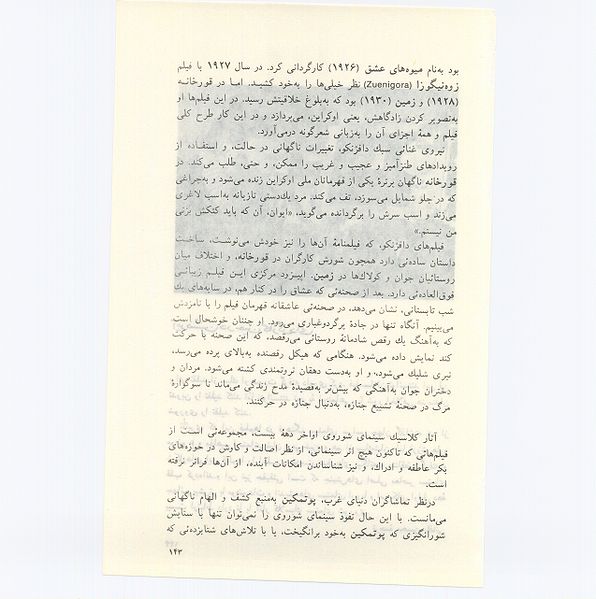 بود به‌نام میوه‌های عشق (۱۹۲۶) کارگردانی کرد. در سال ۱۹۲۷ با فیلم
زوه‌نیگورا (Zuenigora) نظر خیلی‌ها را به‌خود کشید. اما در قورخانه
(۱۹۲۸) و زمین (۱۹۳۰) بود که به‌بلوغ خلاقیتش رسید. در این فیلم‌ها او
به‌تصویر کردن زادگاهش، یعنی اوکراین، می‌پردازد و در این کار طرح کلی
فیلم و همهٔ اجزای آن را به‌زبانی شعرگونه درمی‌آورد.
نیروی غنائی سبك دافژنکو، تغییرات ناگهانی در حالت، و استفـاده از
رویدادهای طنزآمیز و عجیب و غریب را ممکن، و حتی، طلب می‌کند. در
قورخانه ناگهان برنزهٔ یکی از قهرمانان ملی اوکراین زنده می‌شود و به‌چراغی
که در جلو شمایل می‌سوزد، تف می‌کند. مرد یك‌دستی تازیانه به‌اسب لاغری
می‌زند و اسب سرش را برگردانده می‌گوید، «ایوان، آن که باید کتکش بزنی
من نیستم.»
فیلم‌های دافژنکو، که فیلمنامهٔ آن‌ها را نیز خودش می‌نوشت، ساخت
داستان ساده‌ئی دارد همچون شورش کارگران در قورخانه، و اختلاف میان
روستائیان جوان و کولاك‌ها در زمین. اپیزود مرکزی این فیلم زیبائی
فوق‌العاده‌ئی دارد. بعد از صحنه‌ئی که عشاق را در کنار هم، در سایه‌های یك
شب تابستانی، نشان می‌دهد، در صحنه‌ئی عاشقانه قهرمان فیلم را با نامزدش
می‌بینیم. آنگاه تنها در جادهٔ پرگردوغباری می‌رود. او چنان خوشحال است
که به‌آهنگ یك رقص شادمانهٔ روستائی می‌رقصد، که این صحنه با حرکت
کند نمایش داده می‌شود. هنگامی که هیکل رقصنده به‌بالای پرده می‌رسد،
تیری شلیك می‌شود، و او به‌دست دهقان ثروتمندی کشته می‌شود. مردان و
دختران جوان به‌آهنگی که بیش‌تر به‌قصیدهٔ مدح زندگی می‌ماند تا سوگوارهٔ
مرگ در صحنهٔ تشییع جنازه، به‌دنبال جنازه در حرکتند.
آثار کلاسیك سینمای شوروی اواخر دههٔ بیست، مجموعه‌ئی است از
فیلم‌هائی که تاکنون هیچ اثر سینمائی، از نظر اصالت و کاوش در حوزه‌های
بکر عاطفه و ادراك، و نیز شناساندن امکانات آینده، از آن‌ها فراتر نرفته
است.
درنظر تماشاگران دنیای غرب، پوتمکین به‌منبع کشف و الهام ناگهانی
می‌مانست. با این حال نفوذ سینمای شوروی را نمی‌توان تنها با ستایش
شورانگیزی که پوتمکین به‌خود برانگیخت، یا با تلاش‌های شتابزده‌ئی که
۱۴۳